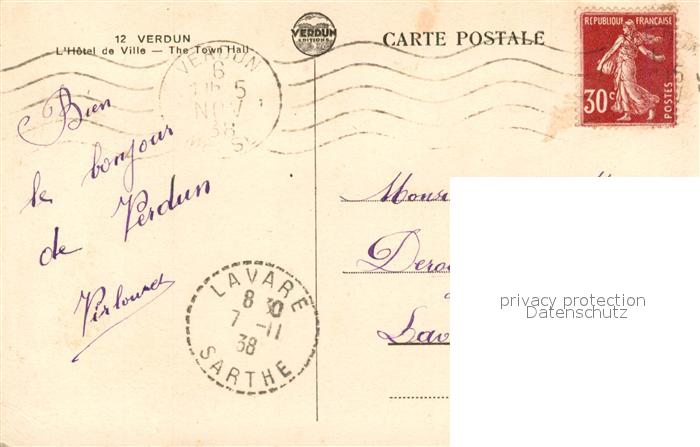 12 VERDUN
L'Hôtel de Ville — The Town Hall
VERDUN
EDITIONS
CARTE POSTALE
REPUBLIQUE FRANÇAISE
30c
POSTES
VERDUN
6
NOV
38
Bien
le bonjour
de Verdun
LAVARE
8 30
7 -11
38
SARTHE
privacy protection
Datenschutz